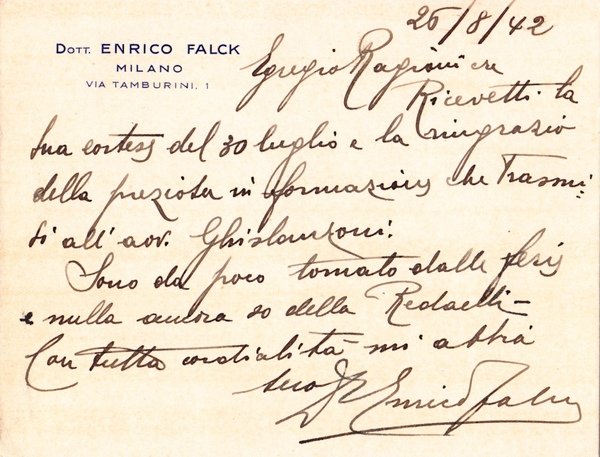 26/8/42
DOTT. ENRICO FALCK
MILANO
VIA TAMBURINI, 1
Egregio Ragioniere
Ricevetti la
sua cortese del 30 luglio e la ringrazio
della preziosa informazione che trasmi-
si all'avv. Ghislanzoni.
Sono da poco tornato dalle ferie
e nulla ancora so della Redaelli-
Con tutta cordialità mi abbia
suo Dr Enrico Falck